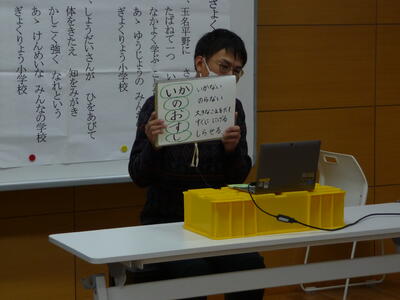 さよく
一、玉名平野に
たばねて一つ
なかよく学ぶ
あゝゆうじょうの み
ぎょくりょう小学校
しょうだいさんが ひをあびて
体をきたえ 知をみがき
かしこく強く なれという
あゝけんめいな みんなの学校
ぎょくりょう小学校
いかのおすし
いかない
のらない
大きなこえをだす
すぐににげる
しらせる